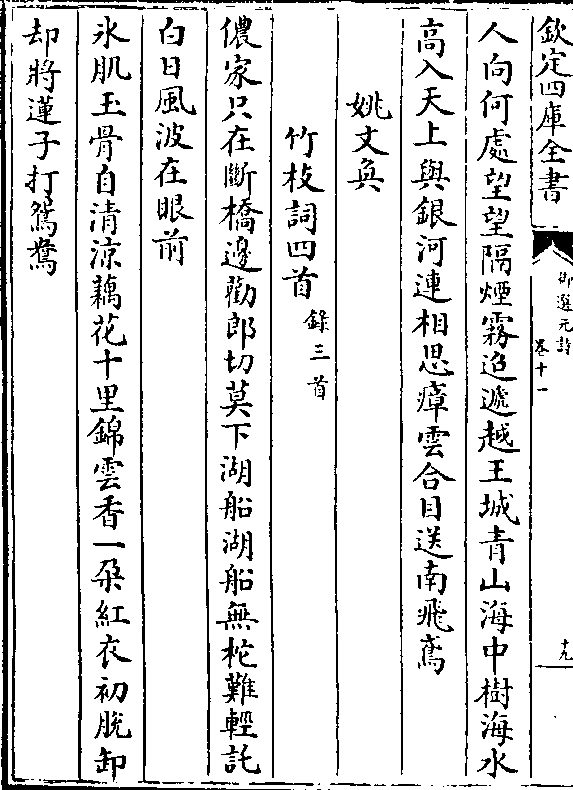 欽定四庫全書
御選元詩
卷十一
十九
人向何處望望隔煙霧迢遞越王城青山海中樹海水
高入天上與銀河連相思瘴雲合目送南飛鳶
姚文奐
竹枝詞四首錄三首
儂家只在斷橋邊勸郎切莫下湖船湖船無柁難輕託
白日風波在眼前
氷肌玉骨自清涼藕花十里錦雲香一朶紅衣初脫卸
却將蓮子打鴛鴦